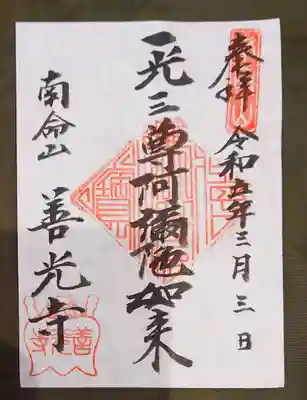 奉拝 令和五年三月三日
一光三尊阿彌陀如来
南命山 善光寺